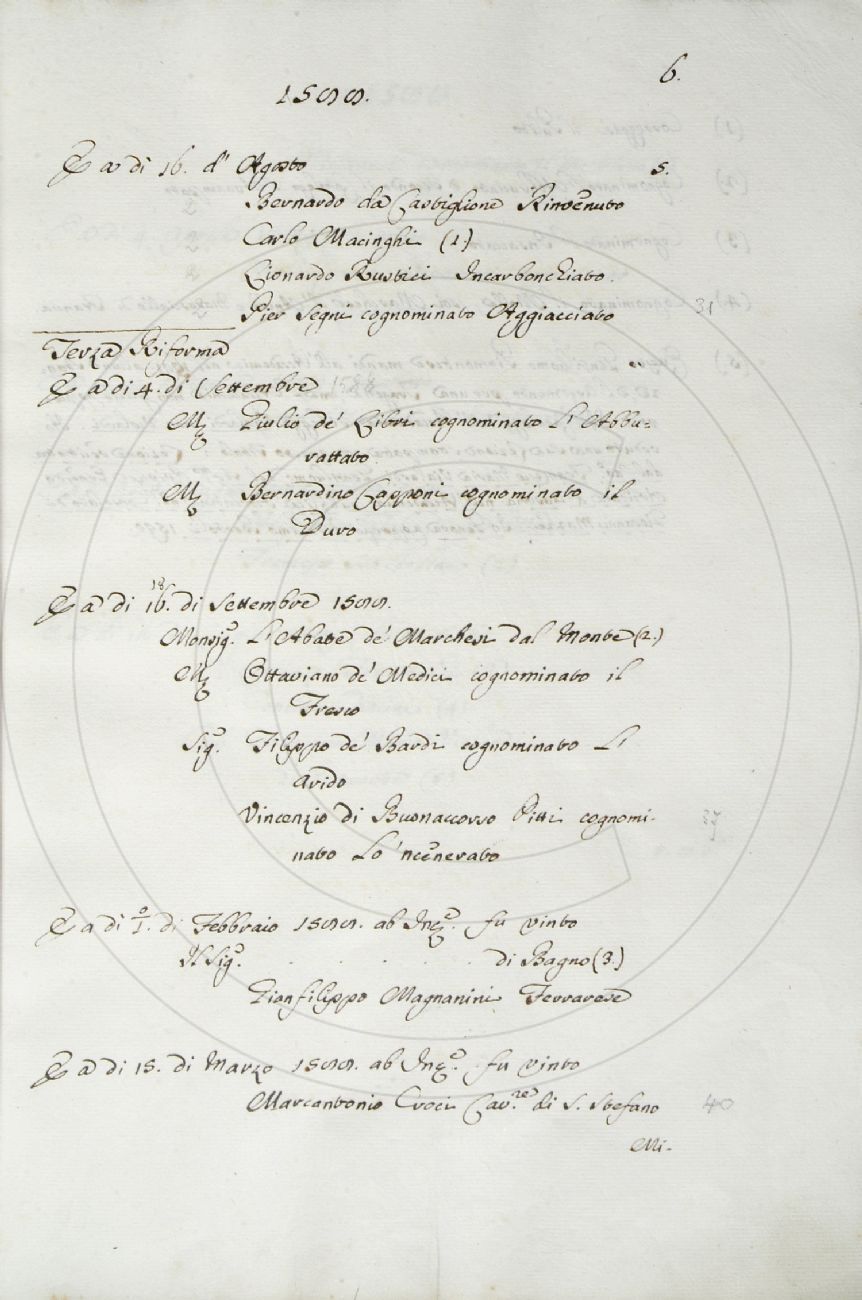 6.
1588.
E a di 16. d'Agosto 5.
Bernardo da Castiglione Rinvenuto
Carlo Macinghi (1.)
Lionardo Rustici Incarbonchiato.
Pier Segni cognominato Aggiacciato 31
Terza Riforma
E a di 4. di Settembre 1588
M. Giulio de' Libri cognominato L'Abbu=
rattato
M. Bernardino Capponi cognominato il
Duro
E a di 16. 18 di Settembre 1588.
Monsig.o L'Abate de' Marchesi dal Monte (2.)
M. Ottaviano de' Medici cognominato il
Fresco
Sig.o Filippo de' Bardi cognominato L'
Arido
Vincenzio di Buonaccorso Pitti cognomi- 37
nato Lo 'ncenerato
E a di 1.o di Febbraio 1588. ab Inc.e fu vinto
Il Sig.o . . . . . . di Bagno (3.)
Gianfilippo Magnanini Ferrarese
E a di 15. di Marzo 1588. ab Inc.e fu vinto
Marcantonio Croci Cav.re di S. Stefano 40
Mi-